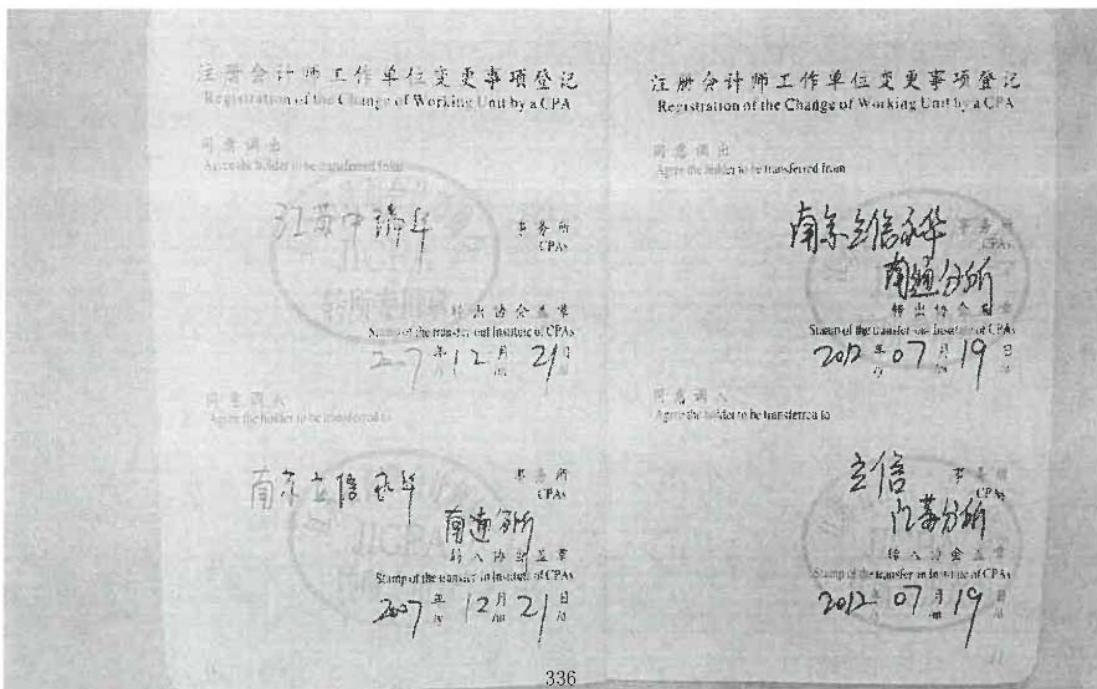 注册会计师工作单位变更事项登记
Registration of the Change of Working Unit by a CPA
同意调出
Agree the holder to be transferred from
江苏中瑞华
事务所
CPAs
JICPA
转所专用章
转出协会盖章
Stamp of the transfer-out Institute of CPAs
2007年12月21日
同意调入
Agree the holder to be transferred to
南京立信永华
事务所
CPAs
南通分所
JICPA
转入协会盖章
Stamp of the transfer-in Institute of CPAs
2007年12月21日
注册会计师工作单位变更事项登记
Registration of the Change of Working Unit by a CPA
同意调出
Agree the holder to be transferred from
南京立信永华
事务所
CPAs
南通分所
转出协会盖章
Stamp of the transfer-out Institute of CPAs
2012年07月19日
同意调入
Agree the holder to be transferred to
立信
事务所
CPAs
江苏分所
转入协会盖章
Stamp of the transfer-in Institute of CPAs
2012年07月19日
336